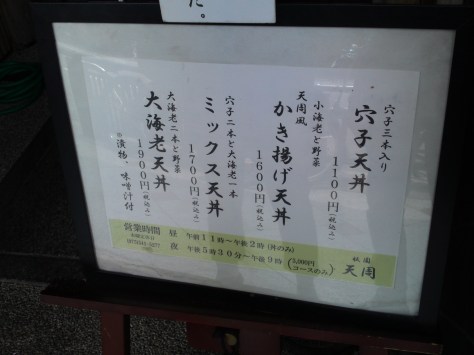 た。
穴子三本入り
穴子天丼
1100円(税込み)
小海老と野菜
天周風
かき揚げ天丼
1600円(税込み)
穴子二本と大海老一本
ミックス天丼
1700円(税込み)
大海老二本と野菜
大海老天丼
1900円(税込み)
※漬物・味噌汁付
営業時間
昼 午前11時〜午後2時(丼のみ)
夜 午後5時30分〜午後9時(5,000円コースのみ)
祇園
天周